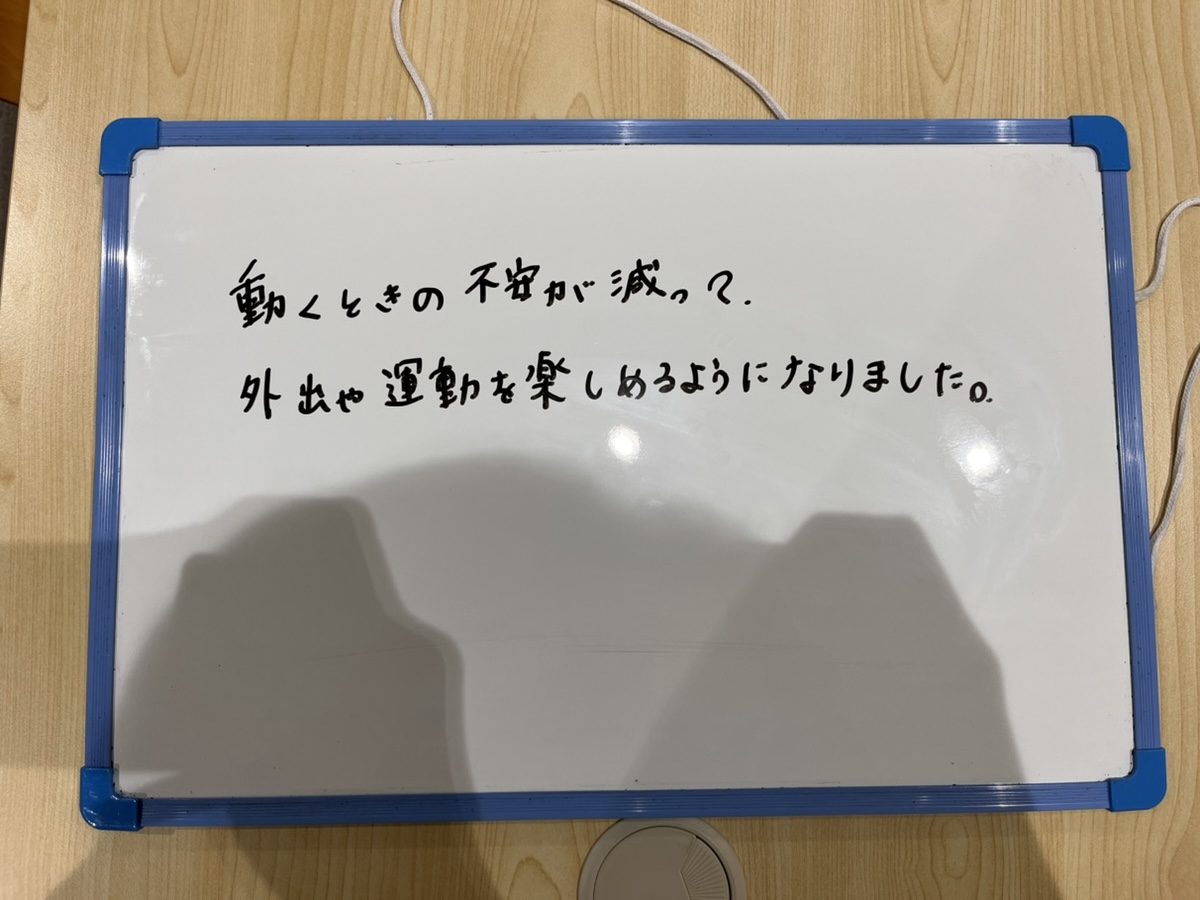 動くときの不安が減って.
外出や運動を楽しめるようになりました。